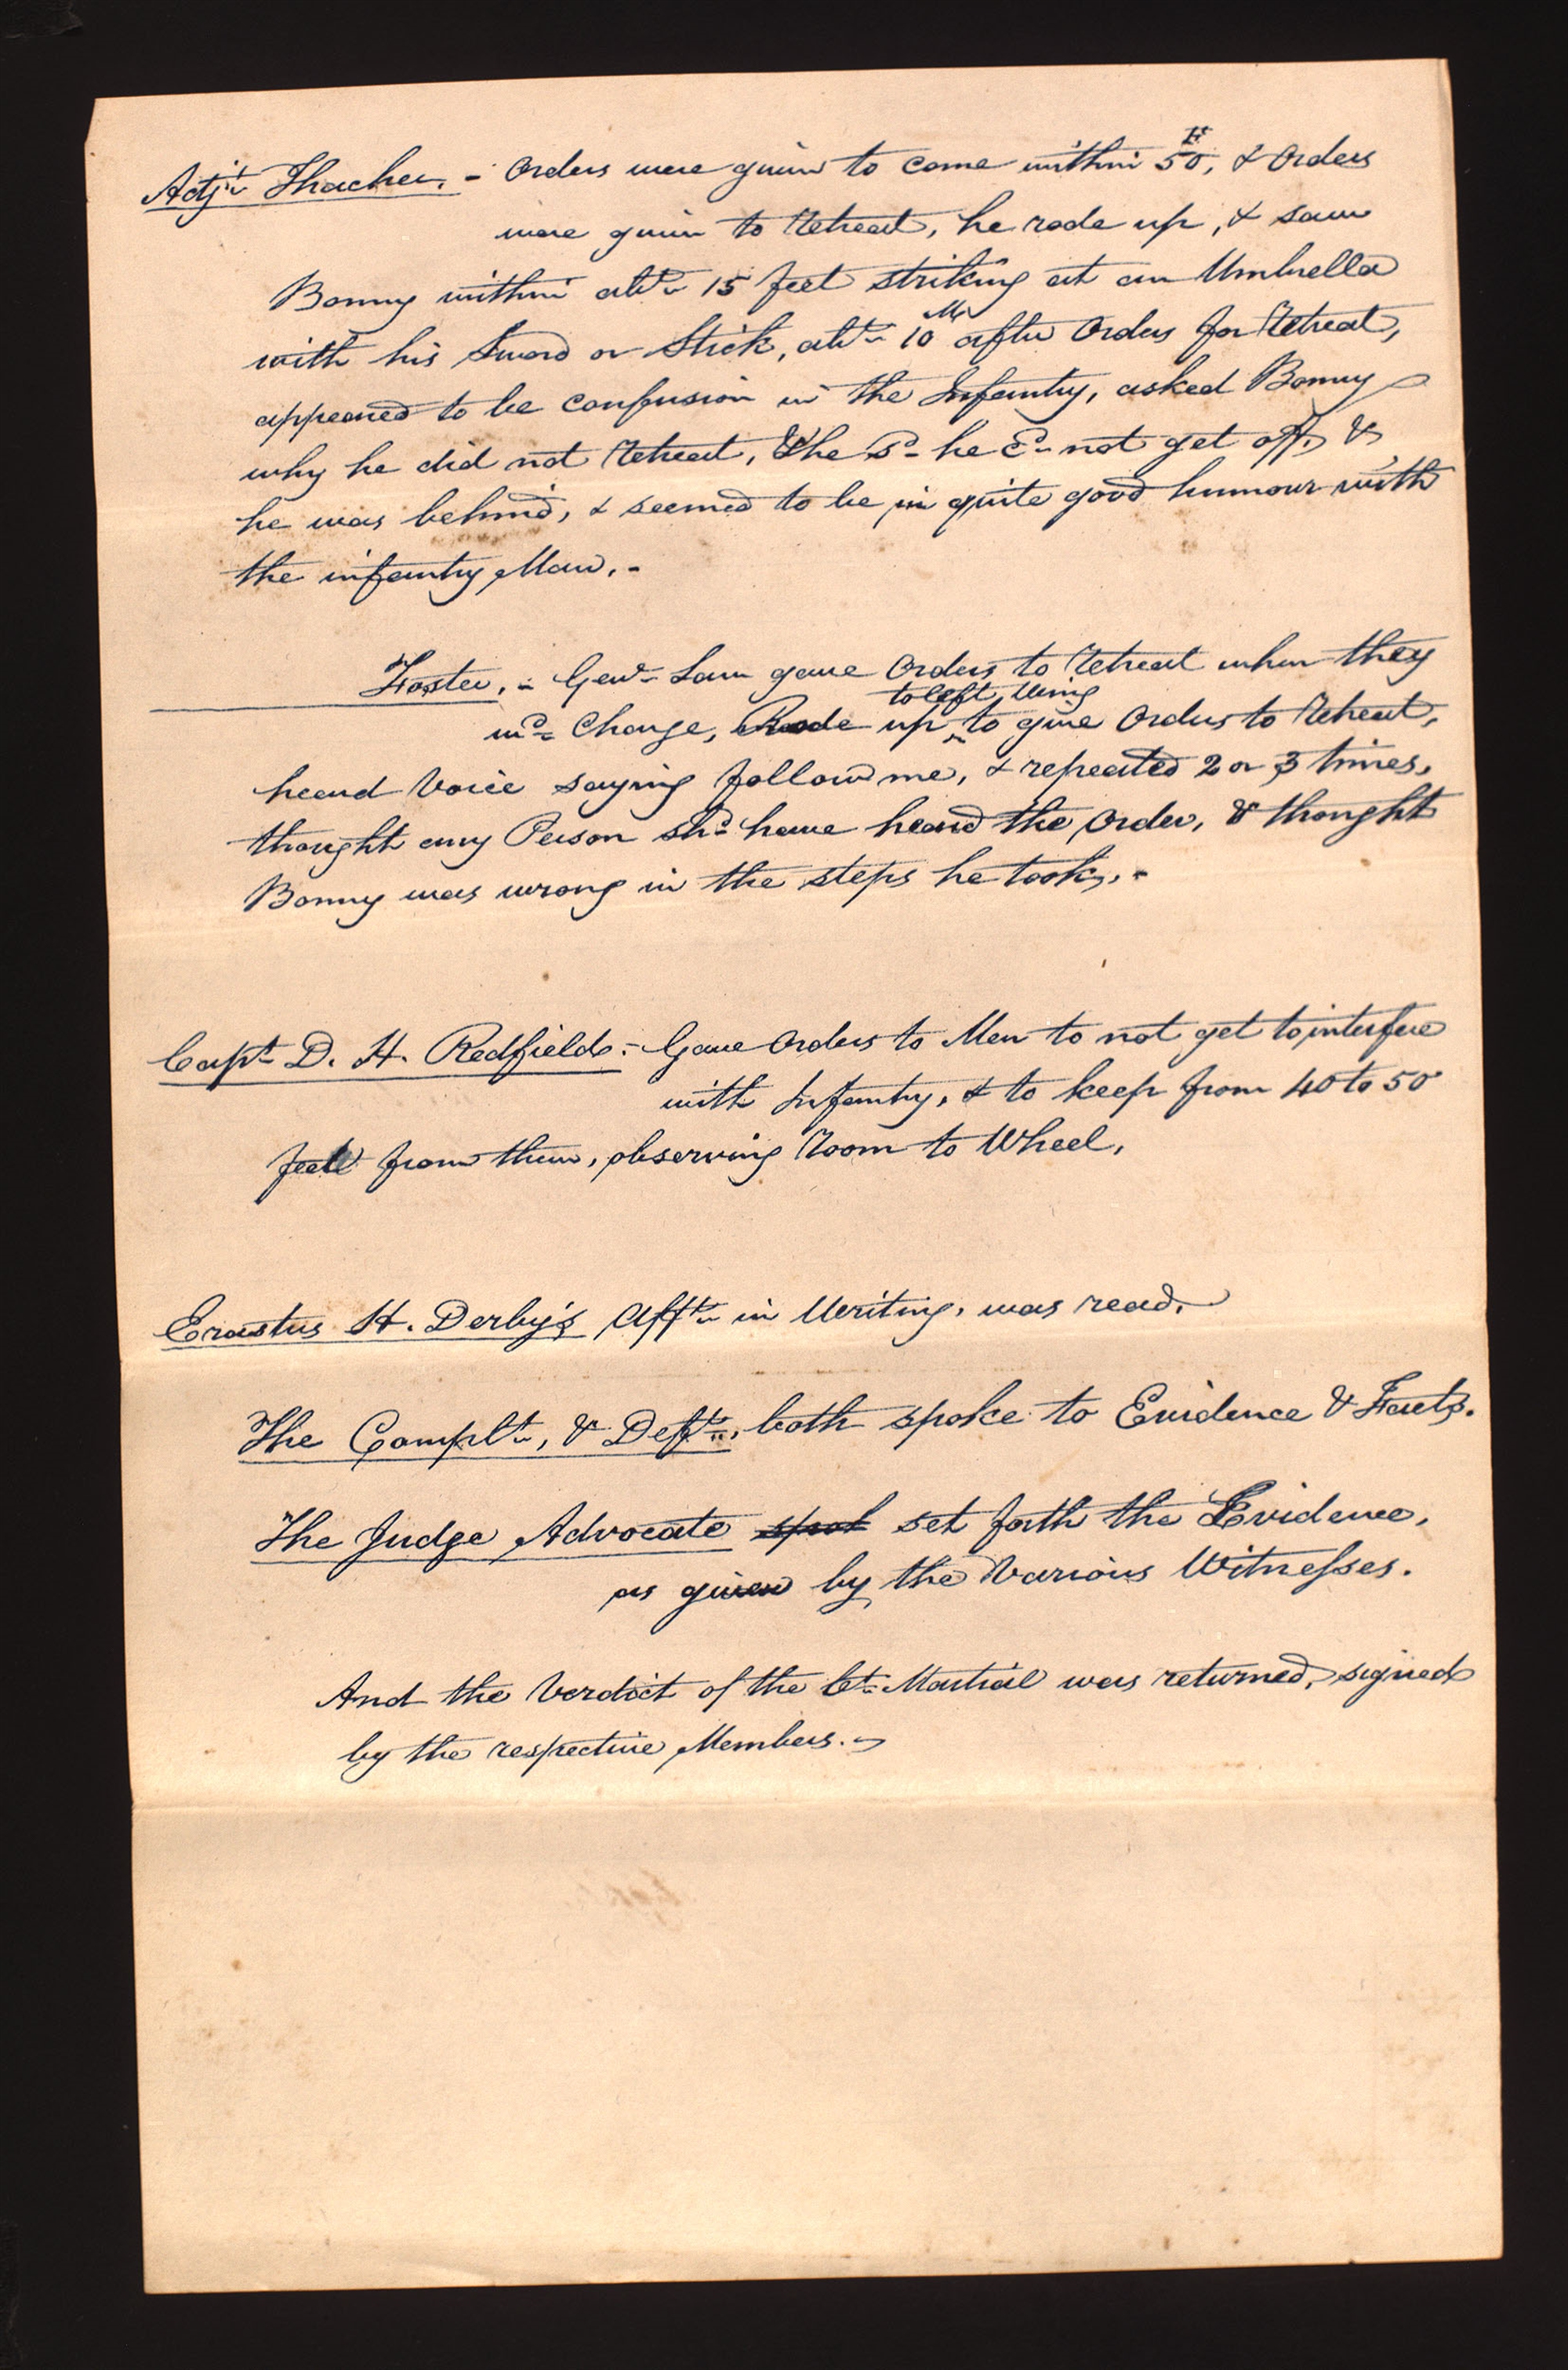 Adjt Thacher. - Orders were given to come within 50 Ft, & Orders
were given to Retreat, he rode up, & saw
Bonny within abt 15 feet striking at an Umbrella
with his Sword or Stick, abt 10 Ms after Orders for Retreat,
appeared to be confusion in the Infantry, asked Bonny
why he did not Retreat, & he sd he cd not get off, &
he was behind, & seemed to be in quite good humour with
the infantry Man. -
Foster, - Genl Law gave Orders to Retreat when they
md Charge, Rode up to left Wing to give Orders to Retreat,
heard Voice saying follow me, & repeated 2 or 3 times,
thought any Person shd have heard the Order, & thought
Bonny was wrong in the steps he took, -
Capt D. H. Redfield - Gave Orders to Men to not get to interfere
with Infantry, & to keep from 40 to 50
feet from them, observing Room to Wheel,
Erastus H. Derby's Afft in Writing, was read,
The Complt, & Deft, both spoke to Evidence & Facts.
The Judge Advocate spok set forth the Evidence,
as given by the Various Witnesses.
And the Verdict of the Ct Martial was returned, signed
by the respective Members. -